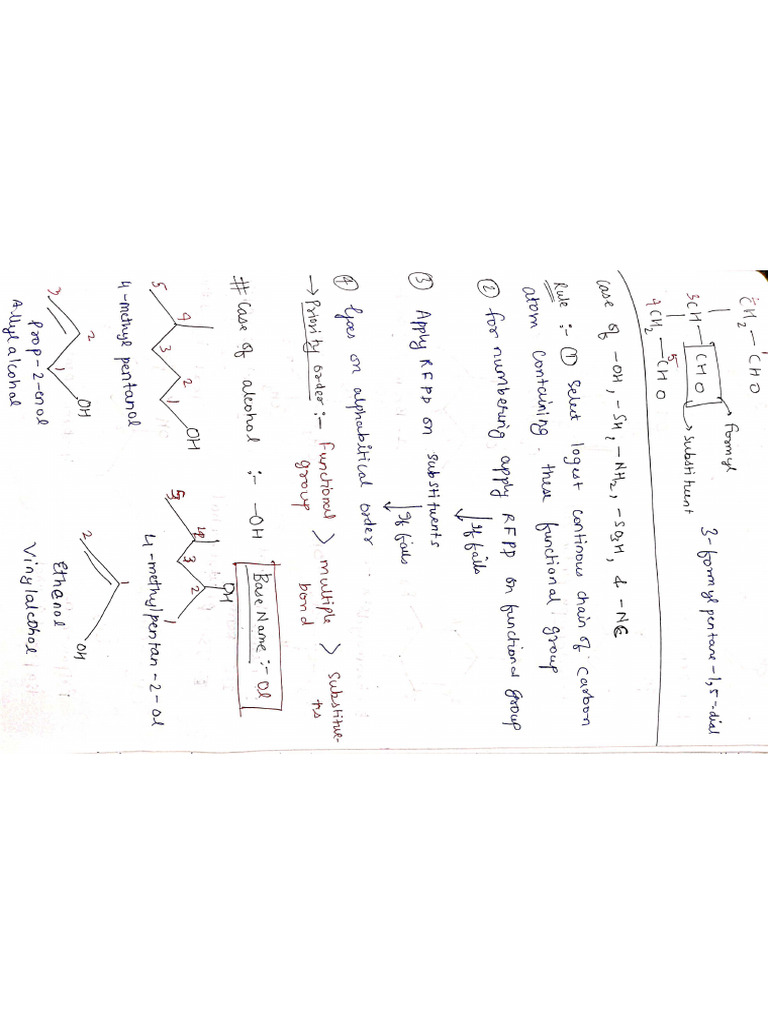 1
2CH2 — CHO
3CH — CHO → formyl
→ substituent
3-formyl pentane-1,5-dial
4CH2 — 5CHO
Case of -OH, -SH, -NH2, -SO3H, & -NC
Rule :- ① Select logest continous chain of carbon
atom containing these functional group
② for numbering apply RFPD on functional group
↓ If fails
③ Apply RFPD on substituents
↓ If fails
④ Goes on alphabitical order
→ Priority order :- functional group > multiple bond > Substitue-
nts
# Case of alcohol :- -OH
Base Name :- Ol
5 4 3 2 1 OH
4-methyl pentanol
5 4 3 2 1 OH
4-methylpentan-2-ol
3 2 1 OH
Prop-2-enol
Allyl alcohal
2 1 OH
Ethenol
Vinylalcohal